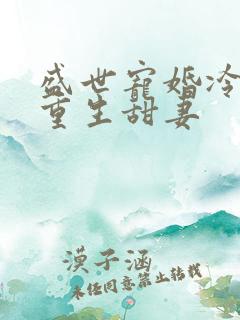 盛世寵婚冷
重生甜妻
漠子涵
未经同意禁止转载